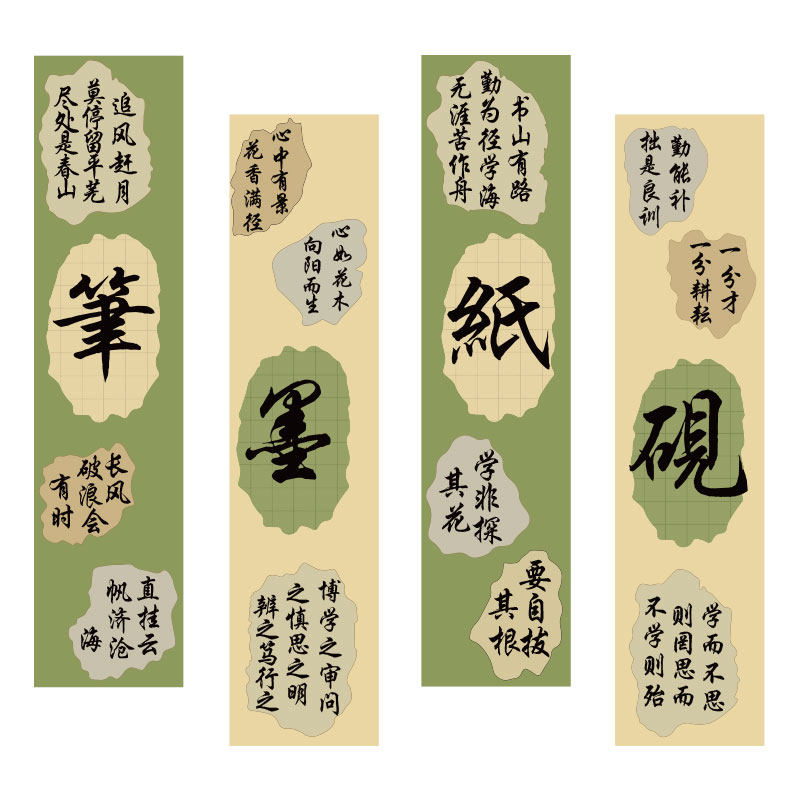 追风赶月
莫停留平芜
尽处是春山
筆
长风
破浪会
有时
直挂云
帆济沧
海
心中有景
花香满径
心如花木
向阳而生
墨
博学之审问
之慎思之明
辨之笃行之
书山有路
勤为径学海
无涯苦作舟
紙
学非探
其花
要自拔
其根
勤能补
拙是良训
一分才
一分耕耘
硯
学而不思
则罔思而
不学则殆